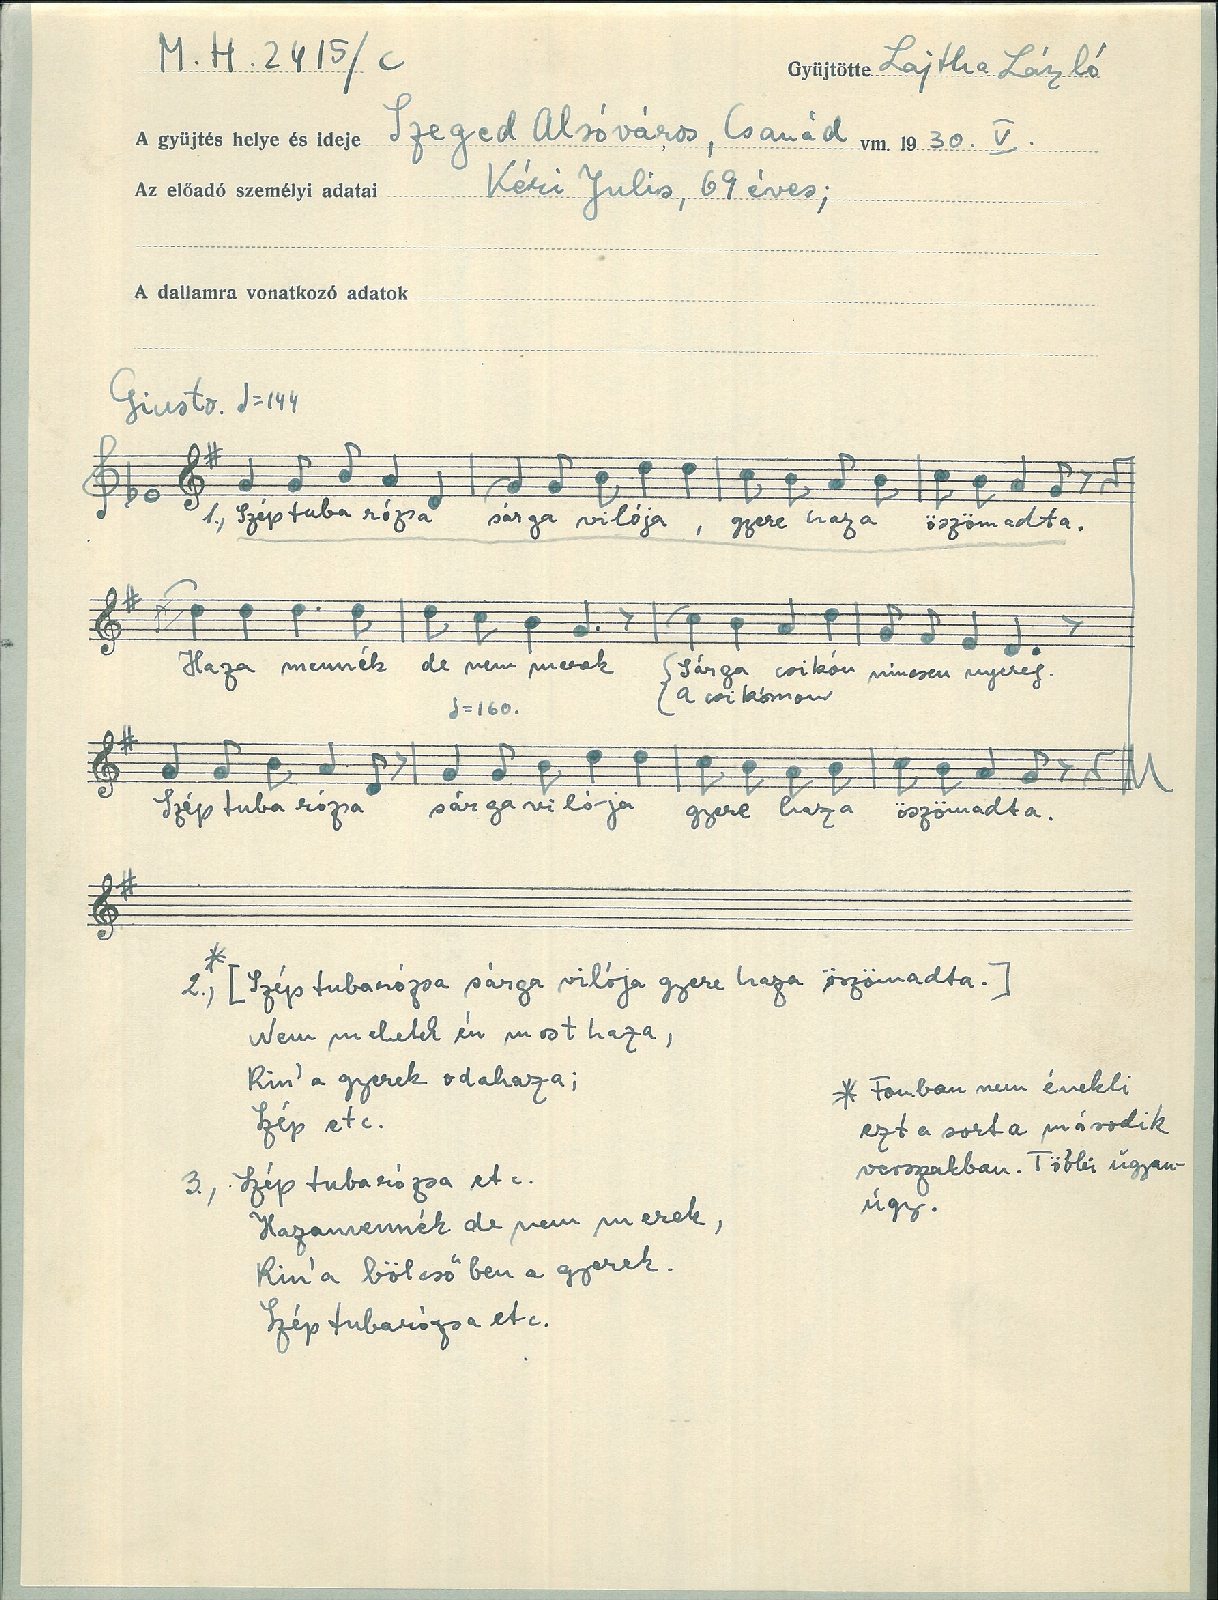 M.H.2415/c
Gyüjtötte Lajtha László
A gyüjtés helye és ideje Szeged Alsóváros, Csanád vm. 1930. V.
Az előadó személyi adatai Kéri Julis, 69 éves;
A dallamra vonatkozó adatok
Giusto. ♩=144
1., Szép tuba rózsa sárga vilója, gyere haza öszömadta.
Haza mennék de nem merek {Sárga csikón nincsen nyereg.
{A csikómon
♩=160.
Szép tuba rózsa sárga vilója gyere haza öszömadta.
2.,* [Szép tubarózsa sárga vilója gyere haza öszömadta.]
Nem mehetek én most haza,
Rin' a gyerek odahaza;
Szép etc.
* Fonban nem énekli
ezt a sort a második
verszakban. Többi úgyan-
úgy.
3., Szép tubarózsa etc.
Hazamennék de nem merek,
Rin' a bölcsőben a gyerek.
Szép tubarózsa etc.